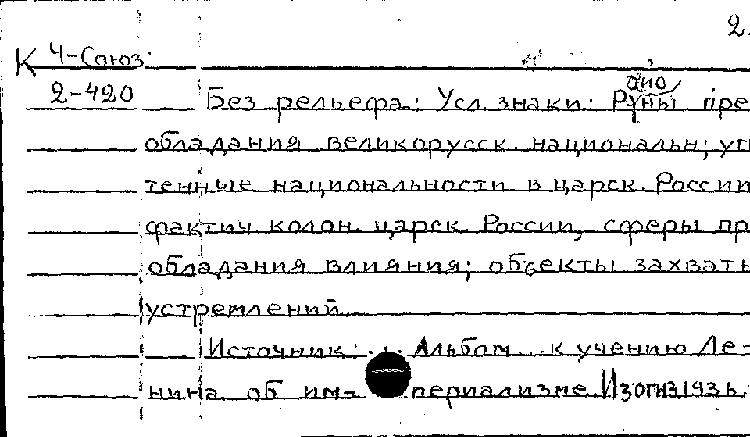 2.
К 4-Союз.
2-420 Без рельефа. Усл. знаки: пре
обладания великорусск. национальн; уг
тенные национальности в царск. России
фактич колон. царск. России, сферы пр
обладания влияния; объекты захват
устремлений
Источник: Альбом к учению Ле-
нина об им- периализме. Изогиз 193